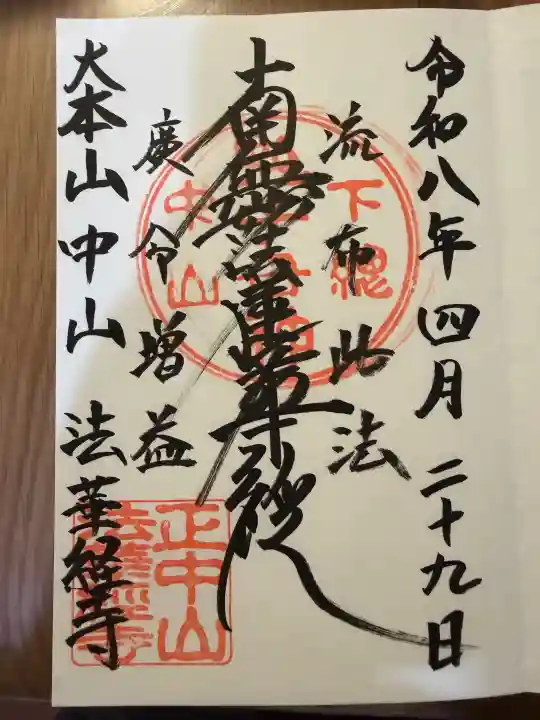 令和八年四月二十九日
流布此法
南無妙法蓮華経
廣令増益
大本山中山法華経寺
下總
中山
正中山
法華経寺